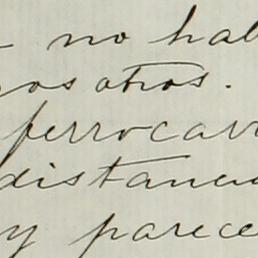 no hab
nosotros.
ferrocar
distanci
y parece